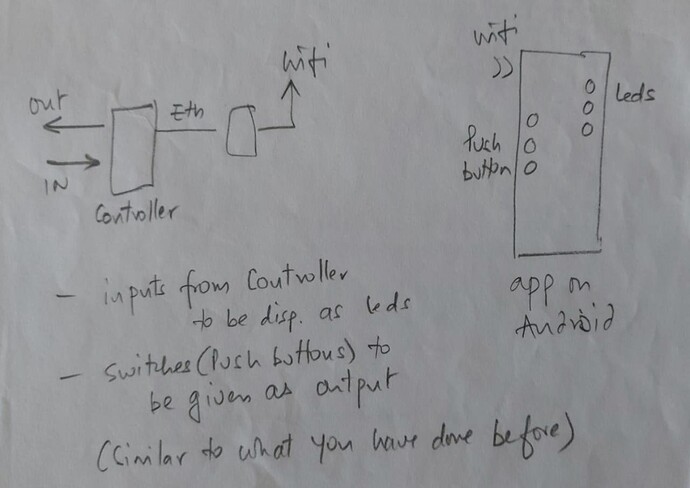 wifi
out
Eth
IN
Controller
wifi
leds
Push
button
app on
Android
- inputs from Controller
to be disp. as leds
- Switches (Push buttons) to
be given as output
(Similar to what you have done before)